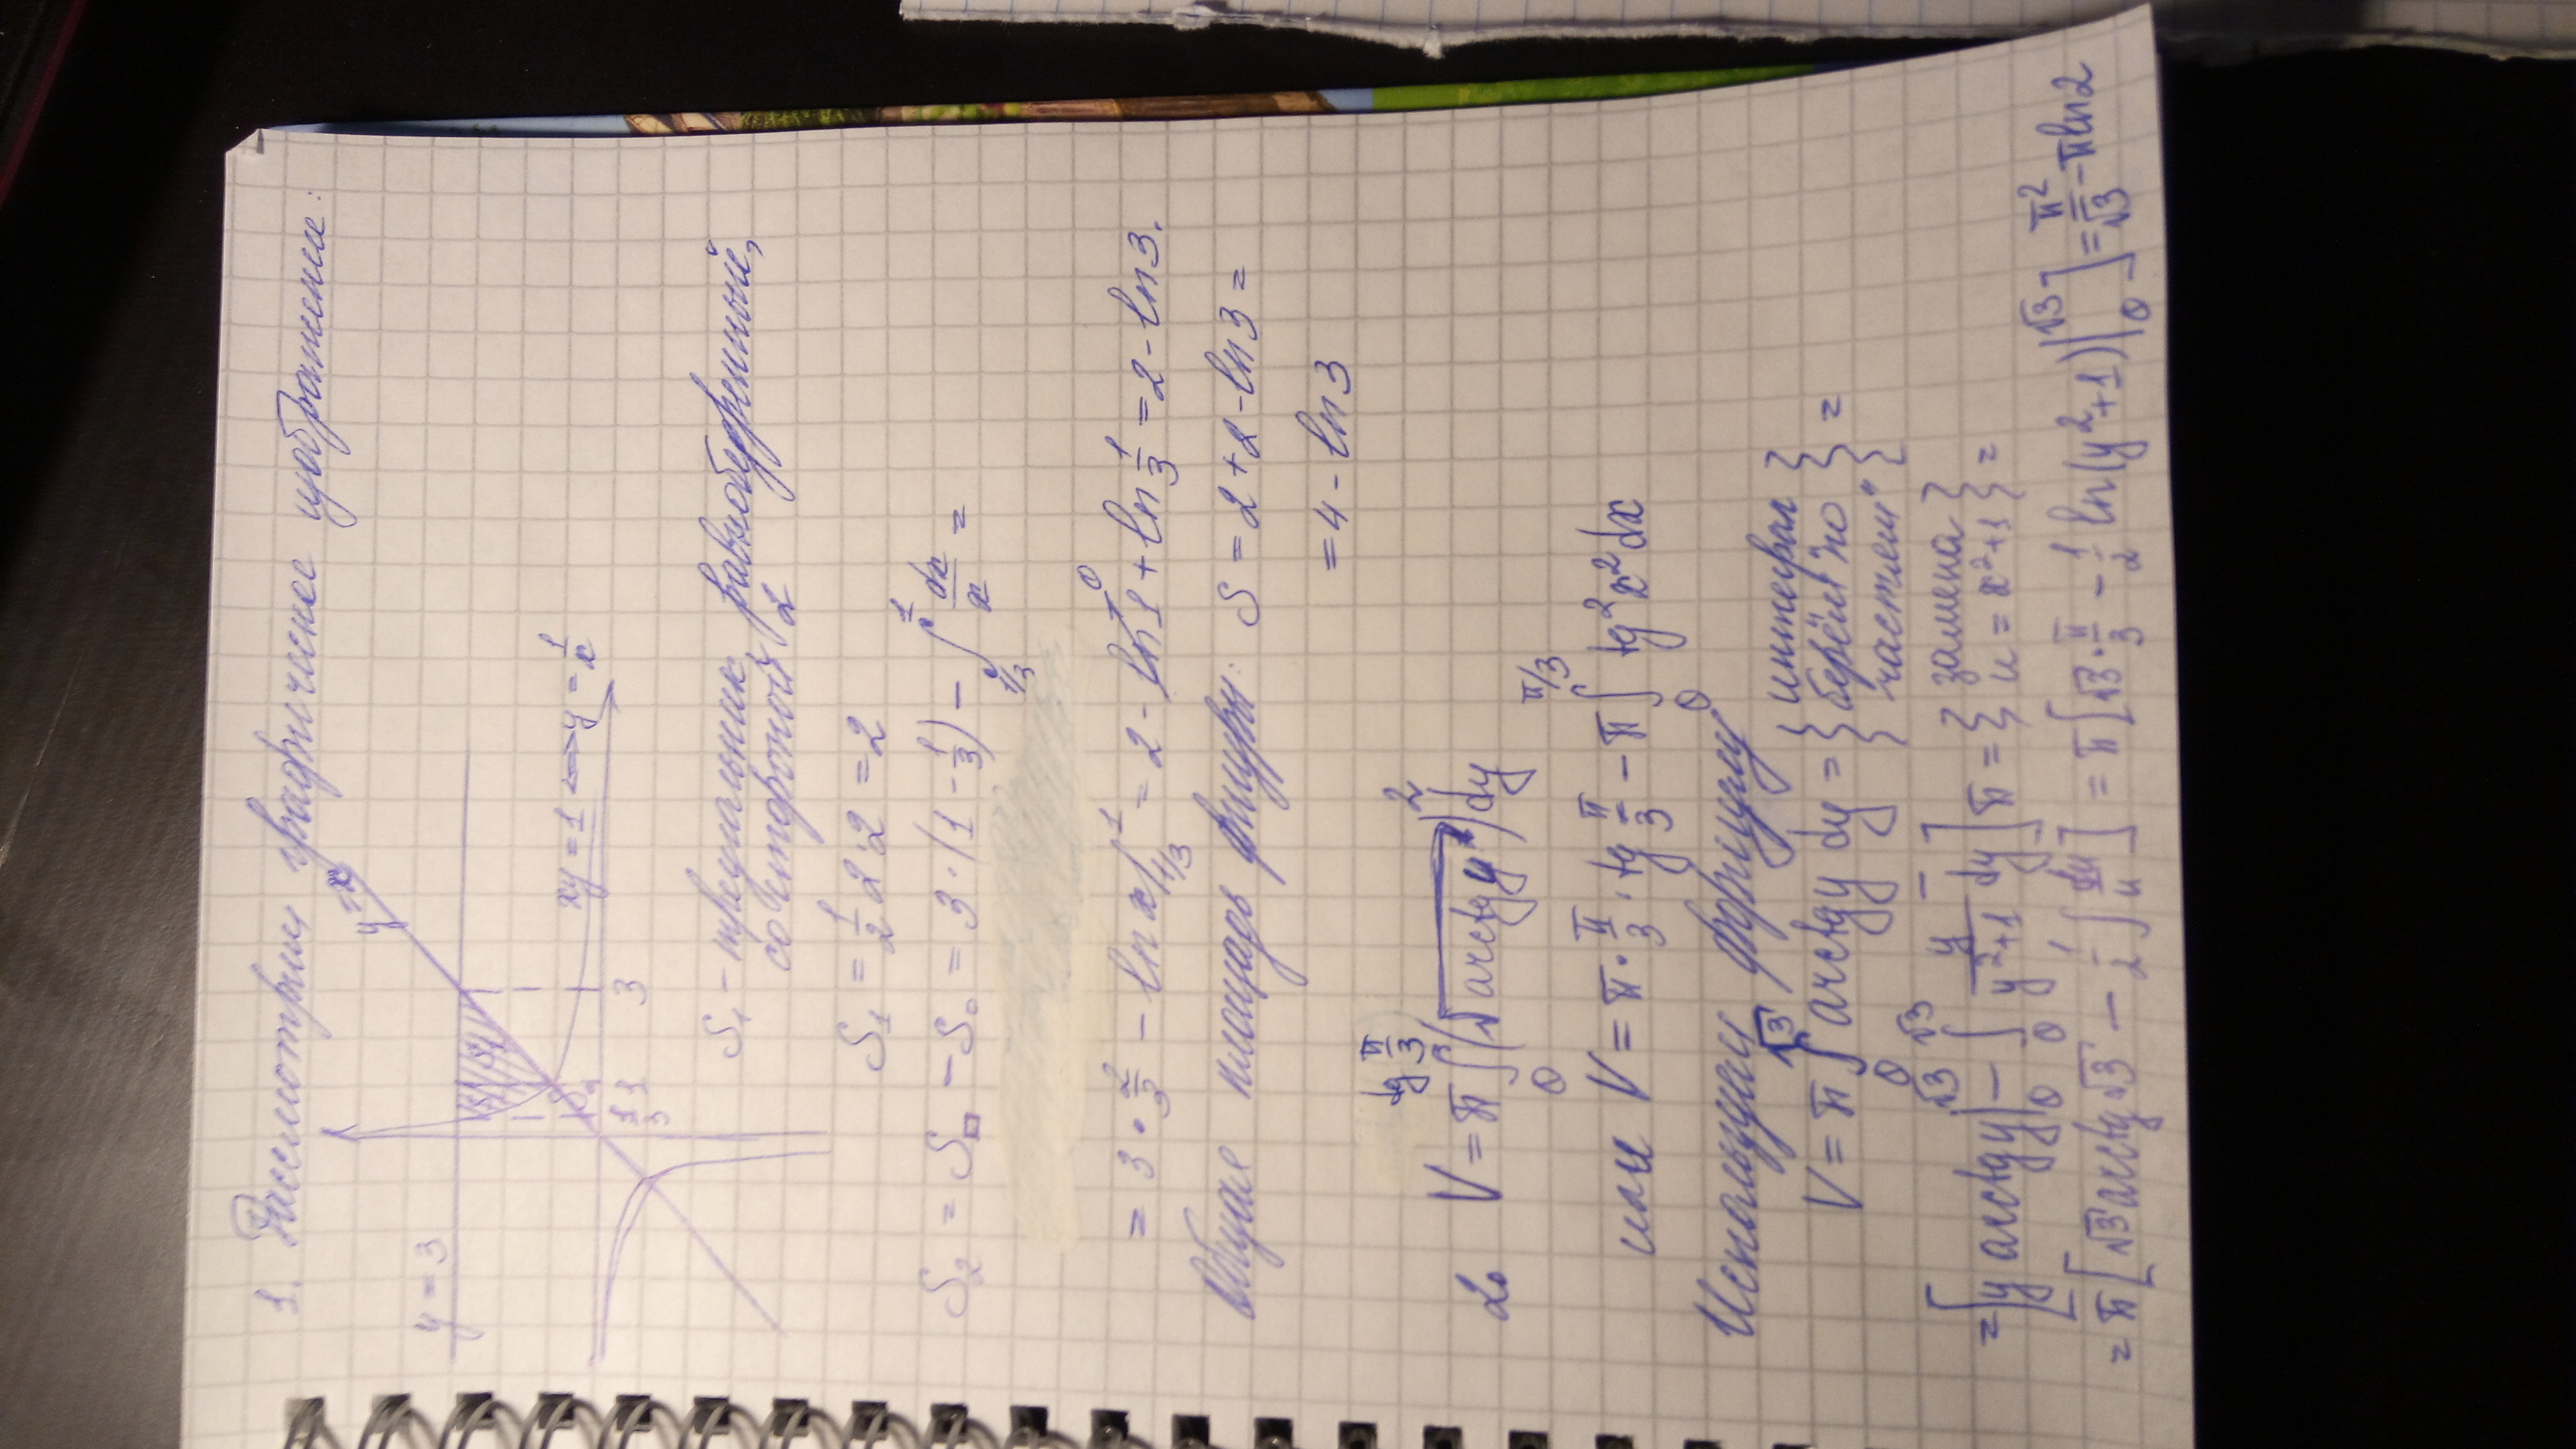 1. Рассмотрим графическое изображение:
y = x
y = 3
xy = 1 <=> y = 1/x
1/3 1 3
S₁ - треугольник равнобедренный,
со стороной 2
S₁ = 1/2 · 2 · 2 = 2
S₂ = S□ - S₀ = 3 · (1 - 1/3) - ∫_{1/3}^{1} dx/x =
= 3 · 2/3 - ln x |_{1/3}^{1} = 2 - ln 1 + ln 1/3 = 2 - ln 3.
0
Общая площадь фигуры: S = 2 + 2 - ln 3 =
= 4 - ln 3
2. V = π ∫_{0}^{tg π/3} (√arctg y)² dy
или V = π · π/3 · tg π/3 - π ∫_{0}^{π/3} tg² x² dx
Используем формулу
V = π ∫_{0}^{√3} arctg y dy = { интеграл берём "по частям" } =
= [y arctg y |_{0}^{√3} - ∫_{0}^{√3} y/(y²+1) dy] π = { замена u = x²+1 } =
= π [√3 arctg √3 - 1/2 ∫ du/u] = π [√3 · π/3 - 1/2 ln(y²+1) |_{0}^{√3}] = π²/√3 - π ln 2